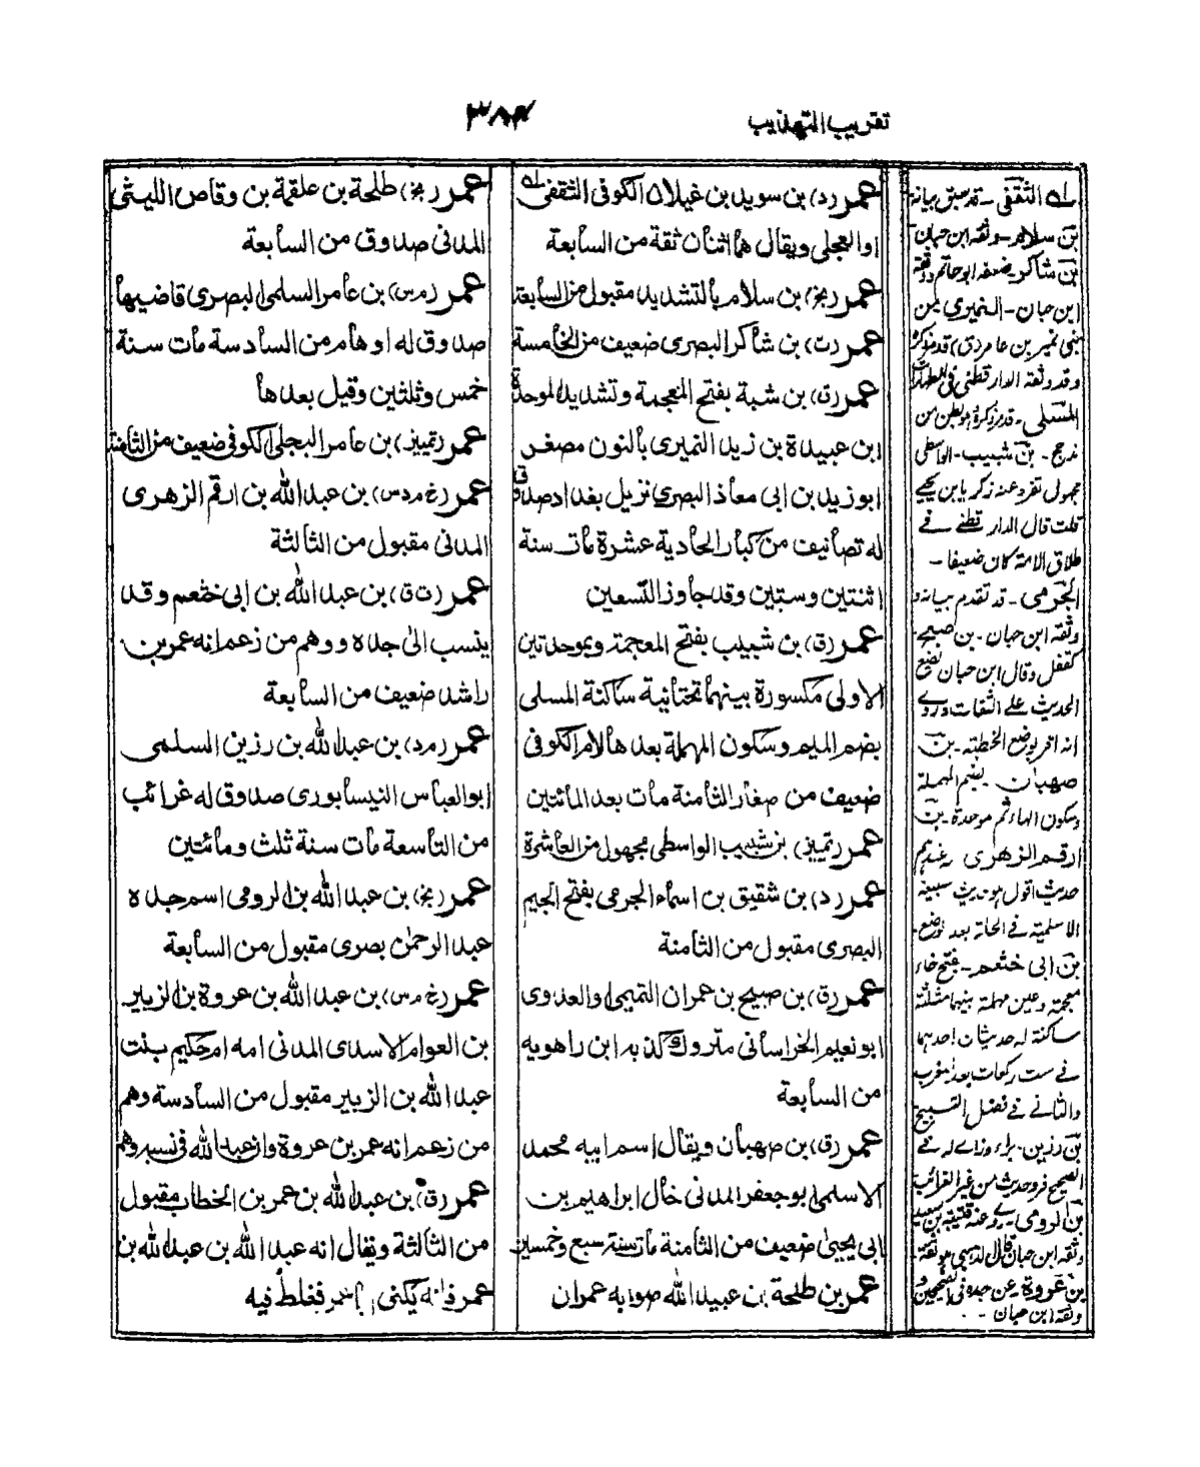 تقريب التهذيب
٣٨٤
عمر (د) بن سويد بن غيلان الكوفى الثقفى
او العجلى ويقال هما اثنان ثقة من السابعة
عمر (بخ) بن سلام بالتشديد مقبول من السابعة
عمر (ت) بن شاكر البصرى ضعيف من الخامسة
عمر (ق) بن شبة بفتح المعجمة وتشديد الموحدة
ابن عبيدة بن زيد النميرى بالنون مصغر
ابو زيد بن ابى معاذ البصرى نزيل بغداد صدوق
له تصانيف من كبار الحادية عشرة مات سنة
اثنتين وستين وقد جاوز التسعين
عمر (ق) بن شبيب بفتح المعجمة وبموحدتين
الاولى مكسورة بينهما تحتانية ساكنة المسلى
بضم الميم وسكون المهملة بعدها لام الكوفى
ضعيف من صغار الثامنة مات بعد المائتين
عمر (تمييز) بن شبيب الواسطى مجهول من العاشرة
عمر (د) بن شقيق بن اسماء الجرمى بفتح الجيم
البصرى مقبول من الثامنة
عمر (ق) بن صبيح بن عمران التميمى او العدوى
ابو نعيم الخراسانى متروك كذبه ابن راهويه
من السابعة
عمر (ق) بن صهبان ويقال اسم ابيه محمد
الاسلمى ابو جعفر المدنى خال ابراهيم بن
ابى يحيى ضعيف من الثامنة مات سنة سبع وخمسين
عمر بن طلحة بن عبيد الله صوابه عمران
عمر (بخ) طلحة بن علقمة بن وقاص الليثى
المدنى صدوق من السابعة
عمر (م س) بن عامر السلمى البصرى قاضيها
صدوق له اوهام من السادسة مات سنة
خمس وثلثين وقيل بعدها
عمر (تمييز) بن عامر البجلى الكوفى ضعيف من الثامنة
عمر (خ م د س) بن عبد الله بن ارقم الزهرى
المدنى مقبول من الثالثة
عمر (ت ق) بن عبد الله بن ابى خثعم وقد
ينسب الى جده ووهم من زعم انه عمر بن
راشد ضعيف من السابعة
عمر (م د) بن عبد الله بن رزين السلمى
ابو العباس النيسابورى صدوق له غرائب
من التاسعة مات سنة ثلث ومائتين
عمر (بخ) بن عبد الله بن الرومى اسم جده
عبد الرحمن بصرى مقبول من السابعة
عمر (خ م س) بن عبد الله بن عروة بن الزبير
بن العوام الاسدى المدنى امه ام حكيم بنت
عبد الله بن الزبير مقبول من السادسة وهم
من زعم انه عمر بن عروة وان عبد الله فى نسبه وهم
عمر (ق) بن عبد الله بن عمر بن الخطاب مقبول
من الثالثة ويقال انه عبد الله بن عبد الله بن
عمر فانه يكنى فغلط فيه
له الثقفى - قد سبق بيانه
بن سلام - وثقه ابن حبان
بن شاكر - ضعفه ابو حاتم ووثقه
ابن حبان - النميرى من
بنى نمير بن عامر (ق) قد مر ذكره
وقد وثقه الدار قطنى فى
المسلى - قد مر ذكره هو بطن من
مذحج - بن شبيب - الواسطى
مجهول تفرد عنه زكريا بن يحيى
قلت قال الدار قطنى فى
طلاق الامة كان ضعيفا -
الجرمى - قد تقدم بيانه و
وثقه ابن حبان - بن صبيح
وقال ابن حبان يضع
الحديث على الثقات وروى
انه اقر بوضع الخطبة - بن
صهبان بضم المهملة
وسكون الهاء ثم موحدة - بن
ارقم الزهرى
حديث سبيعة
الاسلمية فى
بن ابى خثعم - بفتح خاء
معجمة وعين مهملة بينهما مثلثة
ساكنة له حديثان احدهما
فى ست ركعات بعد المغرب
والثانى فى فضل التسبيح
بن رزين - براء وزاى له فى
الصحيح فرد حديث من غير الغرائب
بن الرومى - روى عنه قتيبة بن سعيد
وثقه ابن حبان قال الذهبى هو ثقة
بن عروة - عن جده فى الصحيحين و
وثقه ابن حبان -